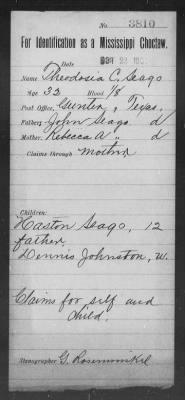 No. 3810
For Identification as a Mississippi Choctaw.
Date
OCT 23
Name Theodosia C. Seago
Age 32 Blood 1/8
Post Office, Gunter, Texas.
Father, John Seago d
Mother, Rebecca A " d
Claims through mother
Children:
Haston Seago, 12
father,
Dennis Johnston, w.
Claims for self and
child.
Stenographer G.